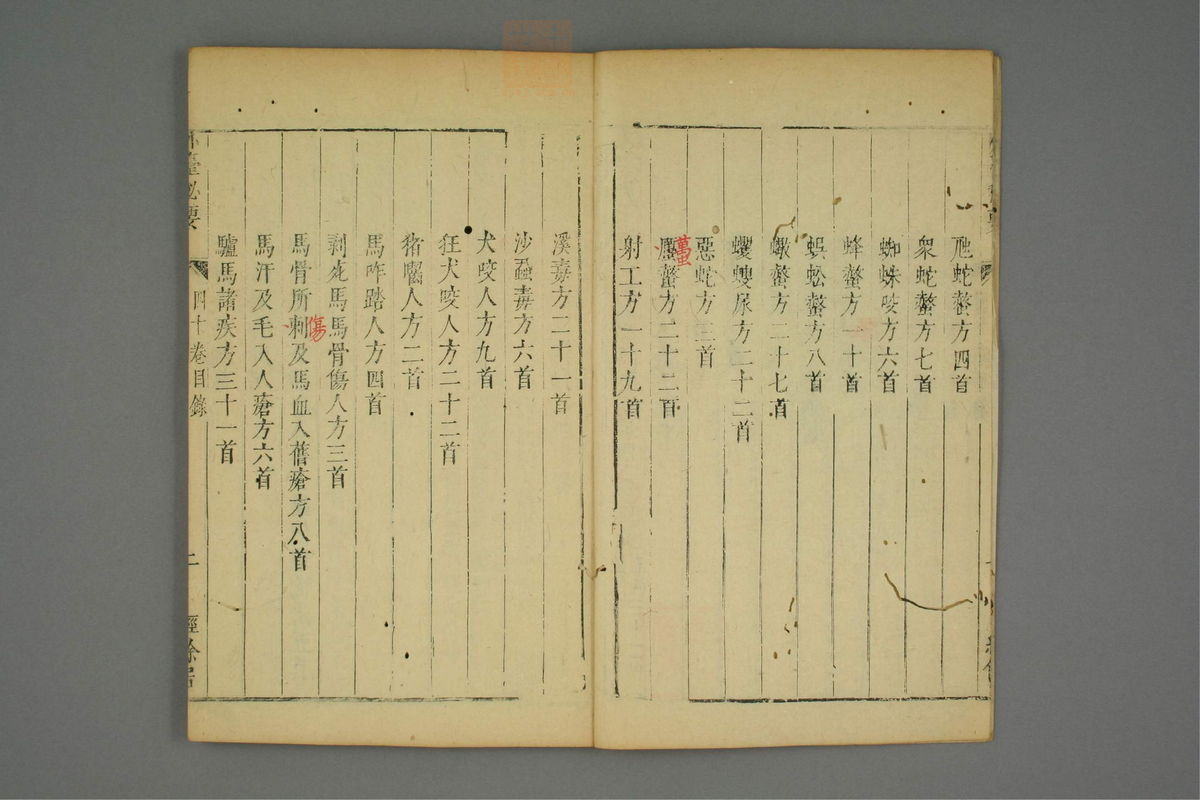 虺蛇螫方四首
衆蛇螫方七首
蜘蛛咬方六首
蜂螫方一十首
蜈蚣螫方八首
蠍螫方二十七首
蠼螋尿方二十二首
惡蛇方三首
螫方二十二首
蠆
射工方一十九首
溪毒方二十一首
沙蝨毒方六首
犬咬人方九首
狂犬咬人方二十二首
豬囓人方二首
馬咋踏人方四首
剥死馬馬骨傷人方三首
馬骨所刺及馬血入舊瘡方八首
傷
馬汗及毛入人瘡方六首
驢馬諸疾方三十一首
外臺秘要
四十卷目錄
二
經餘居